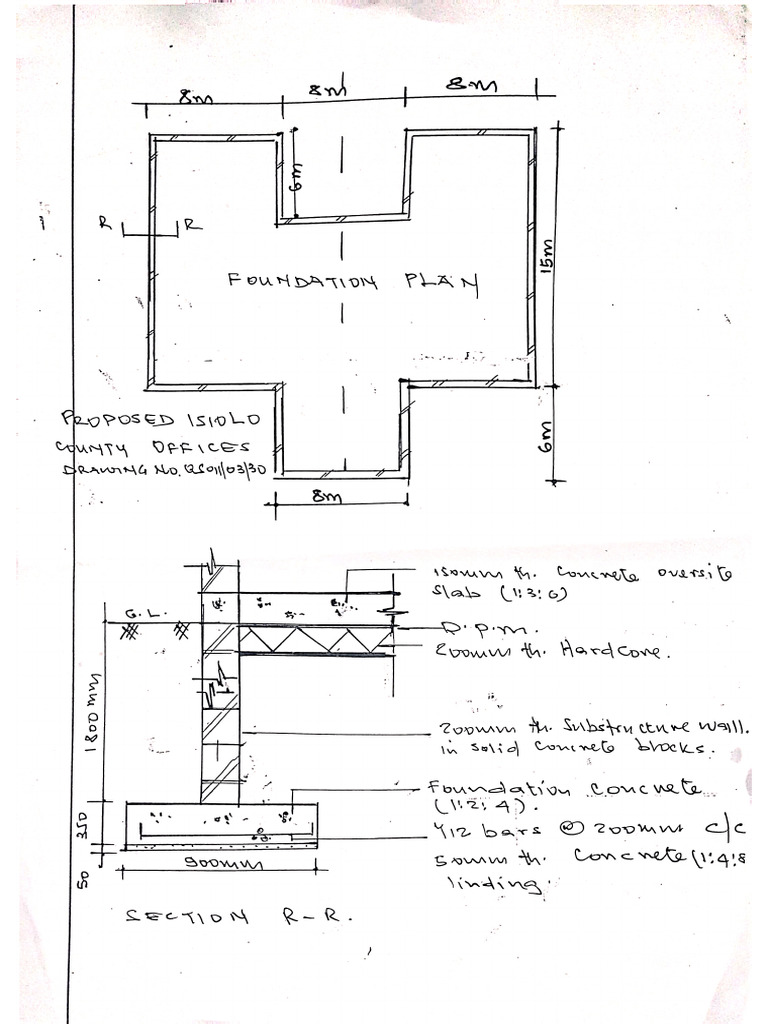 8m 8m 8m
6m
R R
15m
FOUNDATION PLAN
PROPOSED ISIOLO
COUNTY OFFICES
DRAWING NO. QS01/03/30
6m
8m
150mm th. concrete oversite
slab (1:3:6)
G.L.
D.p.m.
200mm th. Hardcore.
1800mm
200mm th. substructure wall.
in solid concrete blocks.
Foundation concrete
(1:2:4).
350
Y12 bars @ 200mm c/c
50mm th. concrete (1:4:8
linding.
900mm
50
SECTION R-R.